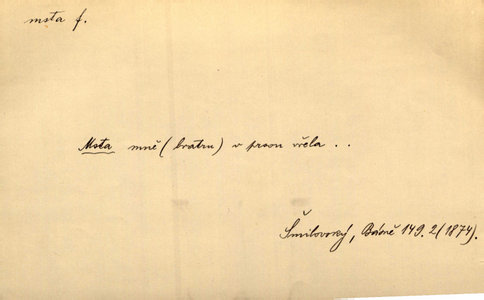 msta f.
Msta mně (bratru) v prsou vřela . .
Šmilovský, Básně 149. 2 (1874).